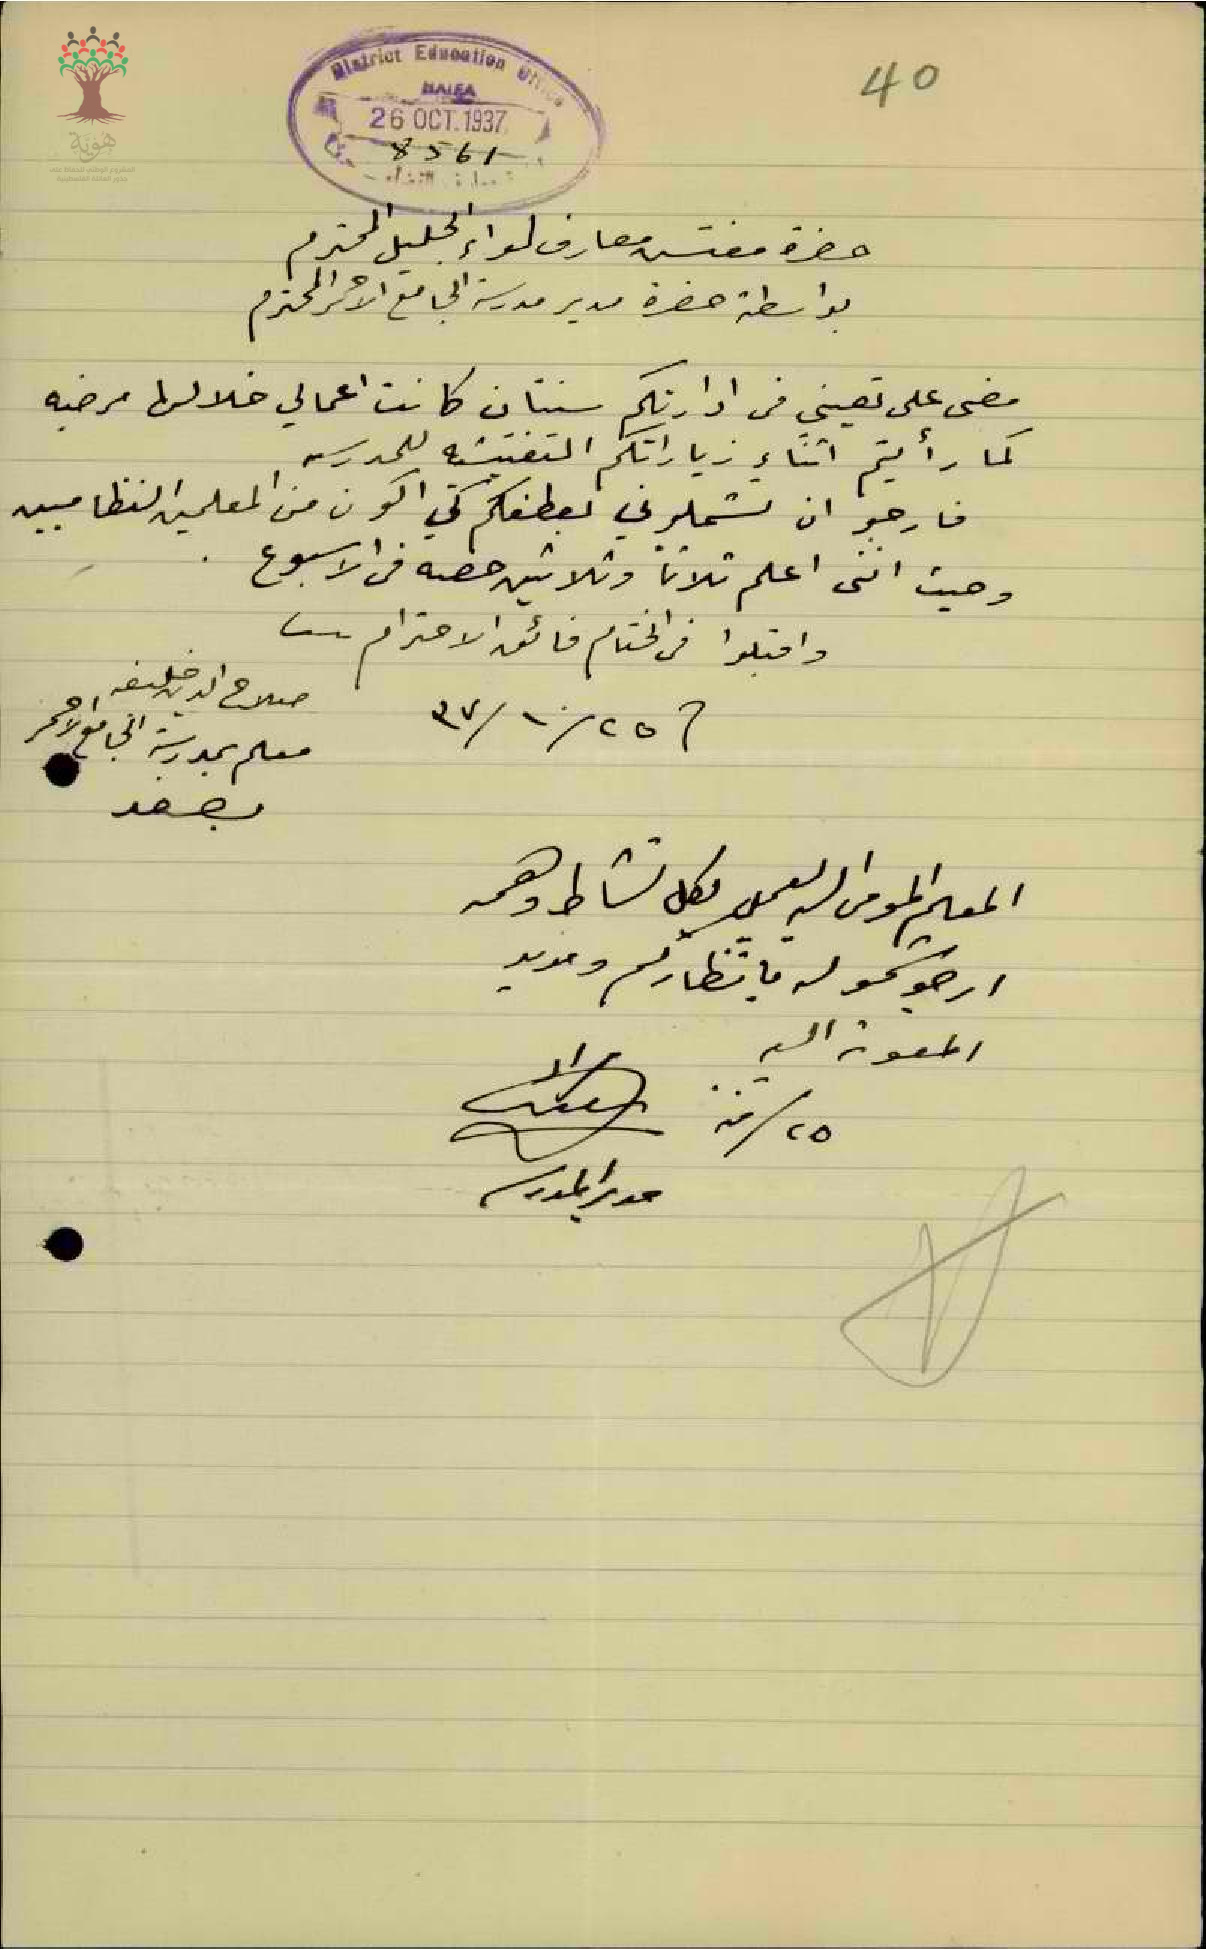 40
District Education Office
HAIFA
26 OCT. 1937
8561
هوية
حضرة مفتش معارف لواء الجليل المحترم
بواسطة حضرة مدير مدرسة الجامع الاحمر المحترم
مضى على تعييني في ادارتكم سنتان كانت اعمالي خلالها مرضيه
كما رأيتم اثناء زياراتكم التفتيشيه للمدرسه
فارجو ان تشملوني بعطفكم كي اكون من المعلمين النظاميين
وحيث انني اعلم ثلاثاً وثلاثين حصه في الاسبوع
واقبلوا في الختام فائق الاحترام
٢٥/١٠/٣٧
صلاح الدين خليفه
معلم بمدرسة الجامع الاحمر
بصفد
المعلم المومى اليه يعمل بكل نشاط وهمه
ارجو شموله بانظاركم ومزيد
المعونة اليه
٢٥/منه
مدير المدرسه